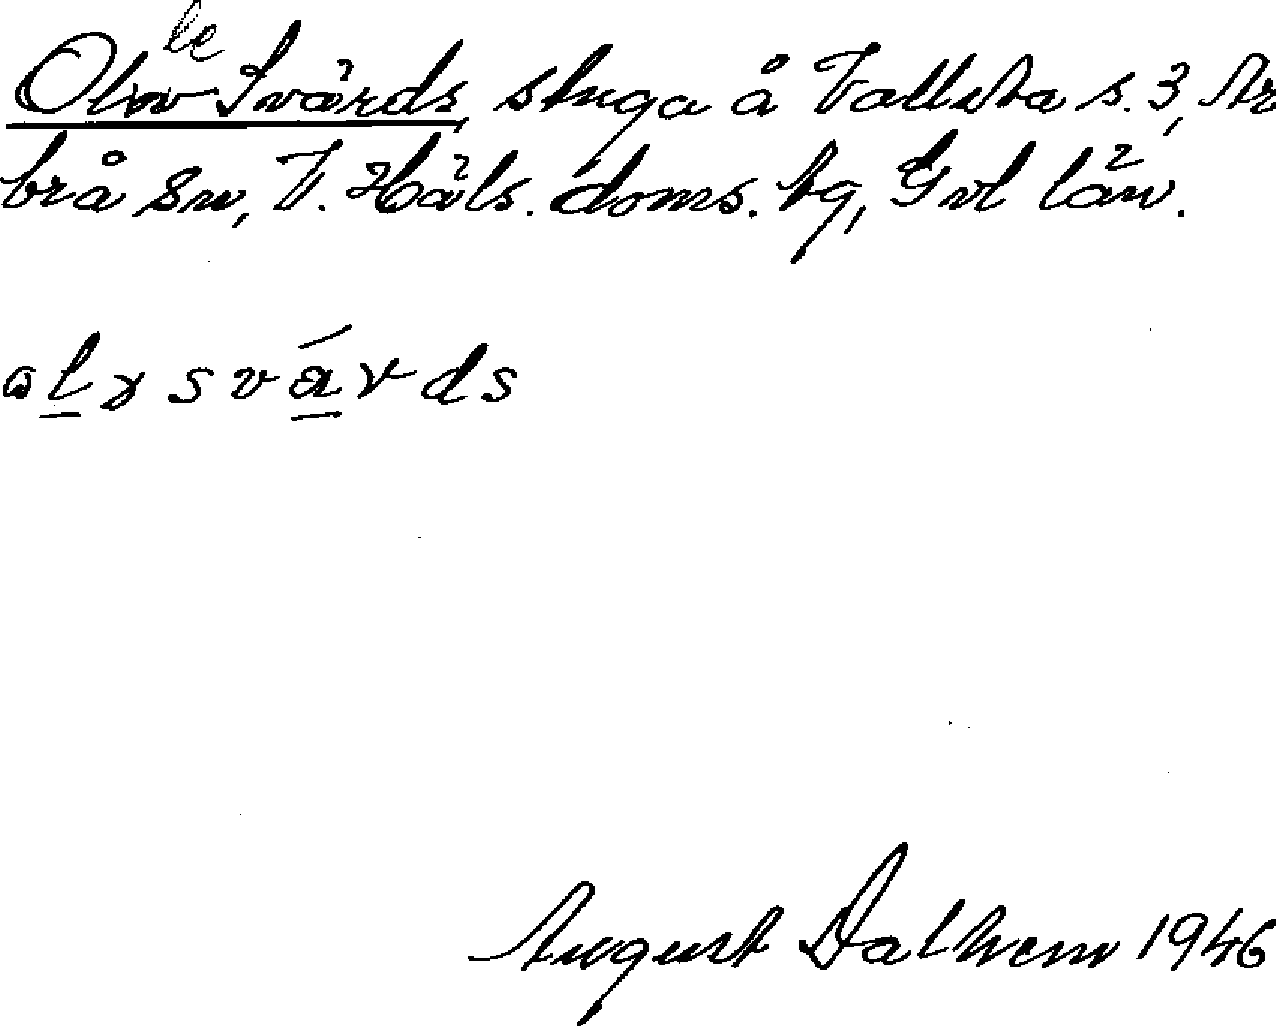 le
Olov Svärds, stuga å Vallsta s. 3, Ar
brå sn, V. Häls. doms. tg, Gvl län.
svärds
August Dalhem 1946